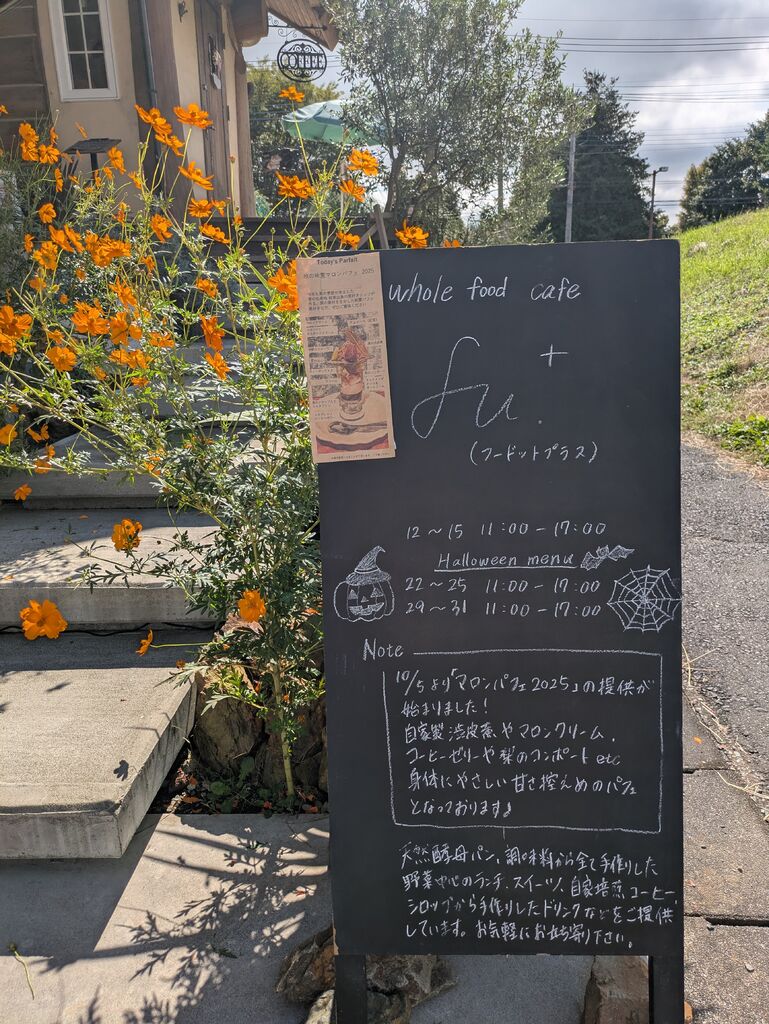 COFFEE
Today's Parfait
秋の味覚マロンパフェ 2025
whole food cafe
fu.+
(フードットプラス)
12～15 11:00-17:00
Halloween menu
22～25 11:00-17:00
29～31 11:00-17:00
Note
10/5より「マロンパフェ2025」の提供が
始まりました!
自家製渋皮煮やマロンクリーム、
コーヒーゼリーや梨のコンポートetc
身体にやさしい甘さ控えめのパフェ
となっております♪
天然酵母パン、調味料から全て手作りした
野菜中心のランチ、スイーツ、自家焙煎コーヒー、
シロップから手作りしたドリンクなどをご提供
しています。お気軽にお立ち寄り下さい。